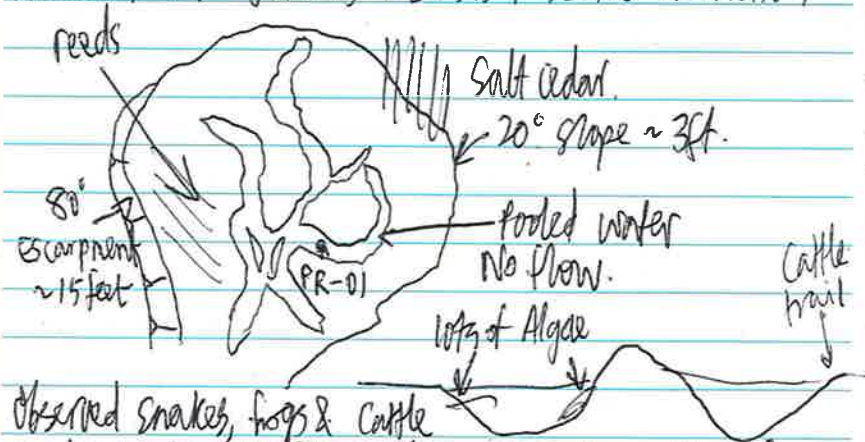 reeds
Salt cedar.
20° slope ~ 3ft.
80°
escarpment
~15 feet
Pooled water
No flow.
PR-01
Cattle
trail
lots of Algae
Observed snakes, frogs & Cattle